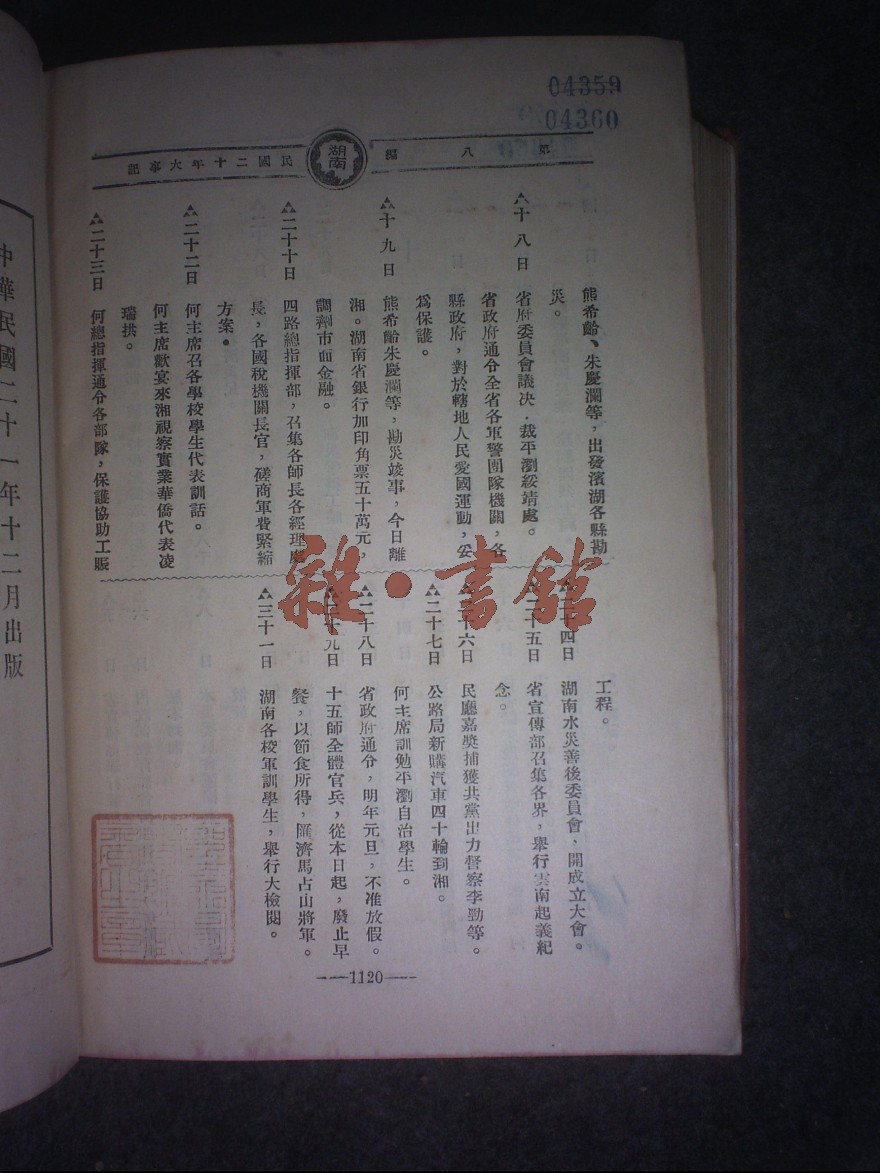 04359
04360
第八編
湖南
民國二十年大事記
熊希齡、朱慶瀾等，出發濱湖各縣勘
災。
▲十八日　省府委員會議决，裁平瀏綏靖處。
省政府通令全省各軍警團隊機關，各
縣政府，對於轄地人民愛國運動，妥
爲保護。
▲十九日　熊希齡朱慶瀾等，勘災竣事，今日離
湘。湖南省銀行加印角票五十萬元，
調劑市面金融。
▲二十日　四路總指揮部，召集各師長各經理處
長，各國稅機關長官，磋商軍費緊縮
方案。
▲二十二日　何主席召各學校學生代表訓話。
何主席歡宴來湘視察實業華僑代表凌
瑞拱。
▲二十三日　何總指揮通令各部隊，保護協助工賑
工程。
▲二十四日　湖南水災善後委員會，開成立大會。
▲二十五日　省宣傳部召集各界，舉行雲南起義紀
念。
▲二十六日　民廳嘉獎捕獲共黨出力督察李勁等。
▲二十七日　公路局新購汽車四十輪到湘。
何主席訓勉平瀏自治學生。
▲二十八日　省政府通令，明年元旦，不准放假。
▲二十九日　十五師全體官兵，從本日起，廢止早
餐，以節食所得，匯濟馬占山將軍。
▲三十一日　湖南各校軍訓學生，舉行大檢閱。
—1120—
中華民國二十一年十二月出版
雜·書館